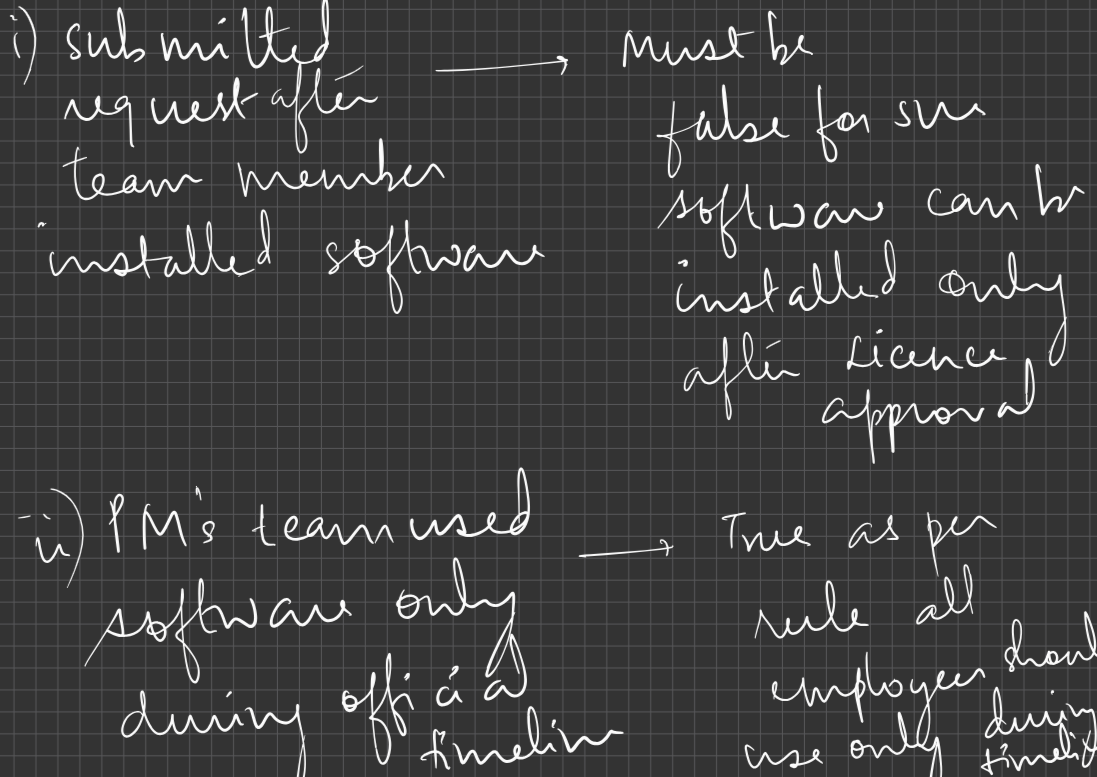 i) submitted
request after
team member
installed software
→ Must be
false for sure
software can be
installed only
after Licence
approval
ii) PM's team used
software only
during official
timeline
→ True as per
rule all
employees should
use only during
timeline